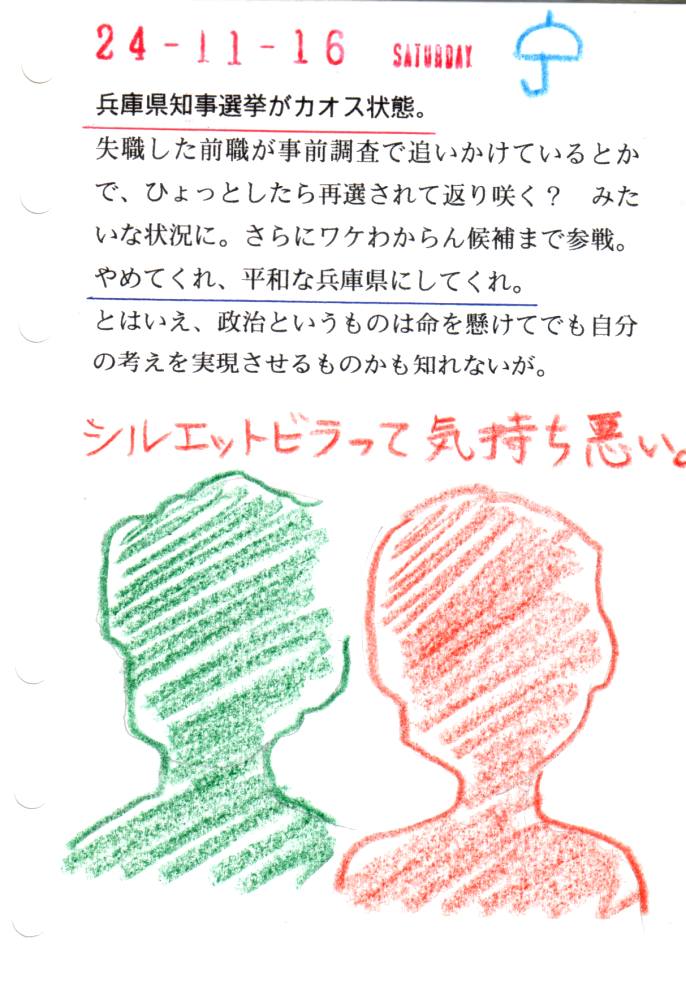 24-11-16 SATURDAY
兵庫県知事選挙がカオス状態。
失職した前職が事前調査で追いかけているとか
で、ひょっとしたら再選されて返り咲く？　みた
いな状況に。さらにワケわからん候補まで参戦。
やめてくれ、平和な兵庫県にしてくれ。
とはいえ、政治というものは命を懸けてでも自分
の考えを実現させるものかも知れないが。
シルエットビラって気持ち悪い。